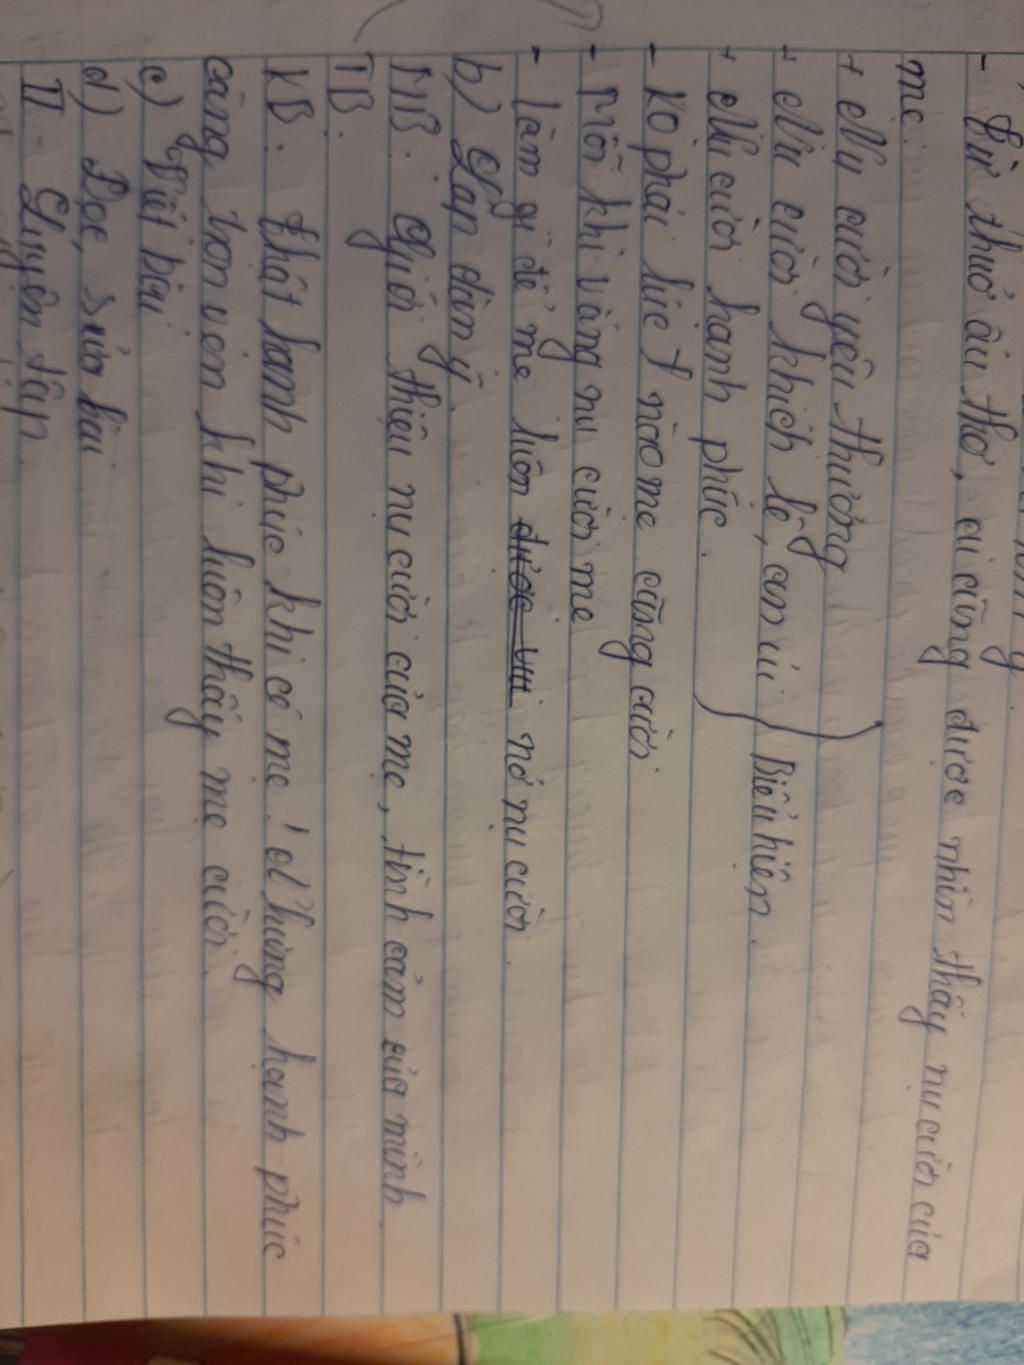 - Từ thuở ấu thơ, ai cũng được nhìn thấy nụ cười của
mẹ.
+ Nụ cười yêu thương
+ Nụ cười khích lệ, an ủi } Biểu hiện.
+ Nụ cười hạnh phúc.
- Ko phải lúc nào mẹ cũng cười
- Mỗi khi vắng nụ cười mẹ
- Làm gì để mẹ luôn nở nụ cười.
b) Lập dàn ý
MB. Giới thiệu nụ cười của mẹ, tình cảm của mình
TB.
KB. Thật hạnh phúc khi có mẹ! Nhưng hạnh phúc
càng trọn vẹn khi luôn thấy mẹ cười.
c) Viết bài
d) Đọc, sửa bài
II. Luyện tập